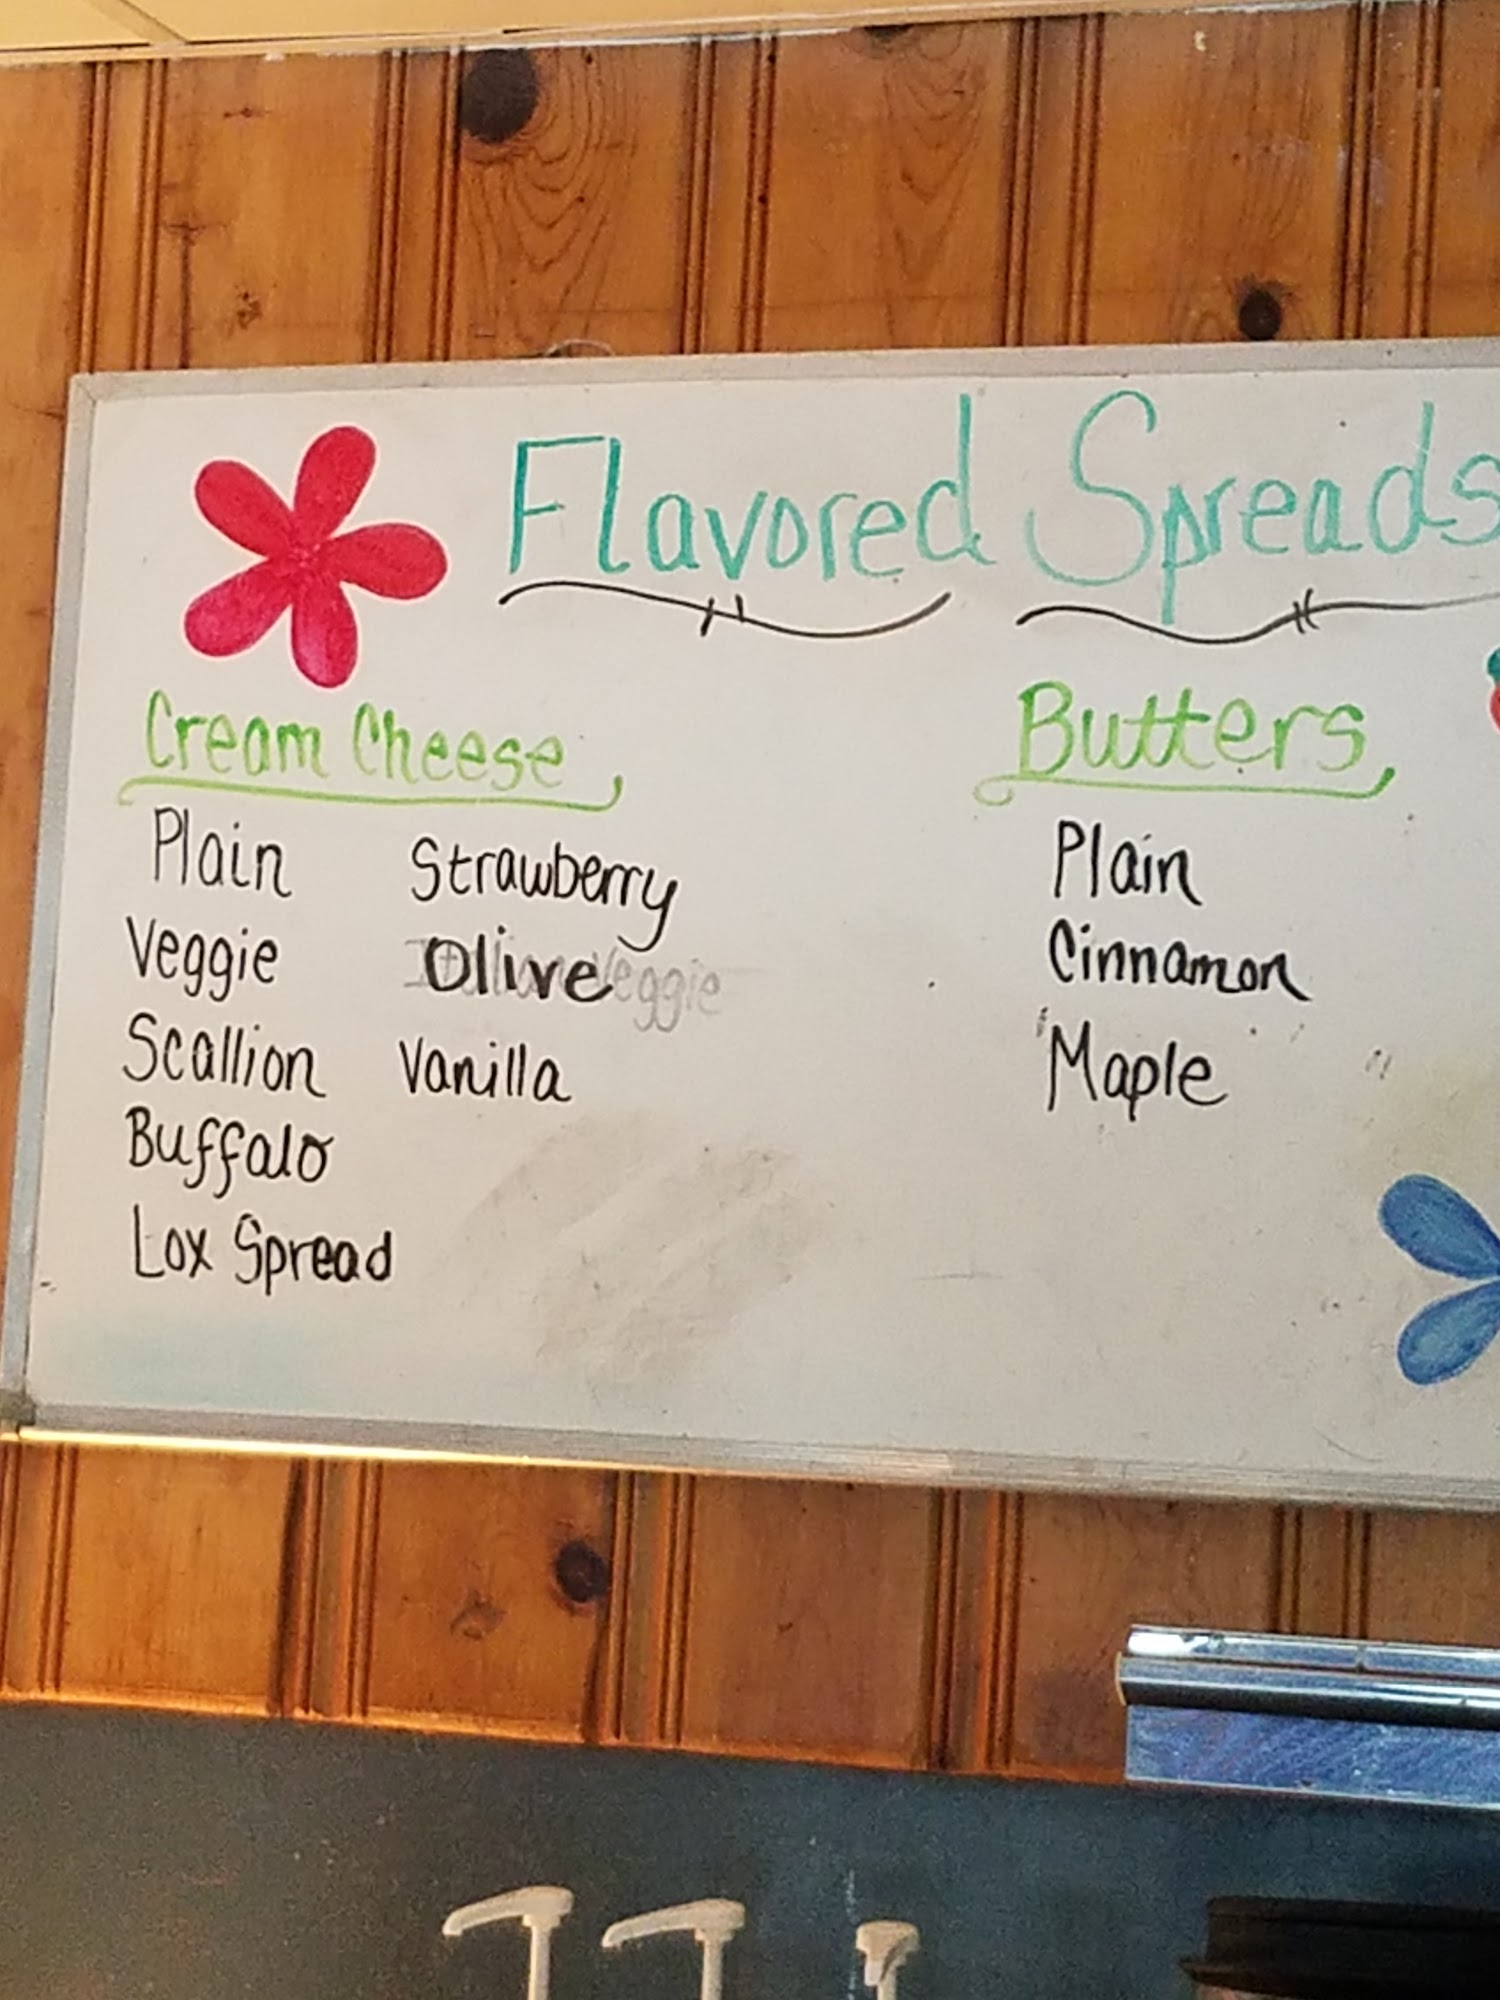 Flavored Spreads
Cream Cheese
Plain
Veggie
Scallion
Buffalo
Lox Spread
Strawberry
Olive
Italian Veggie
Vanilla
Butters
Plain
Cinnamon
Maple